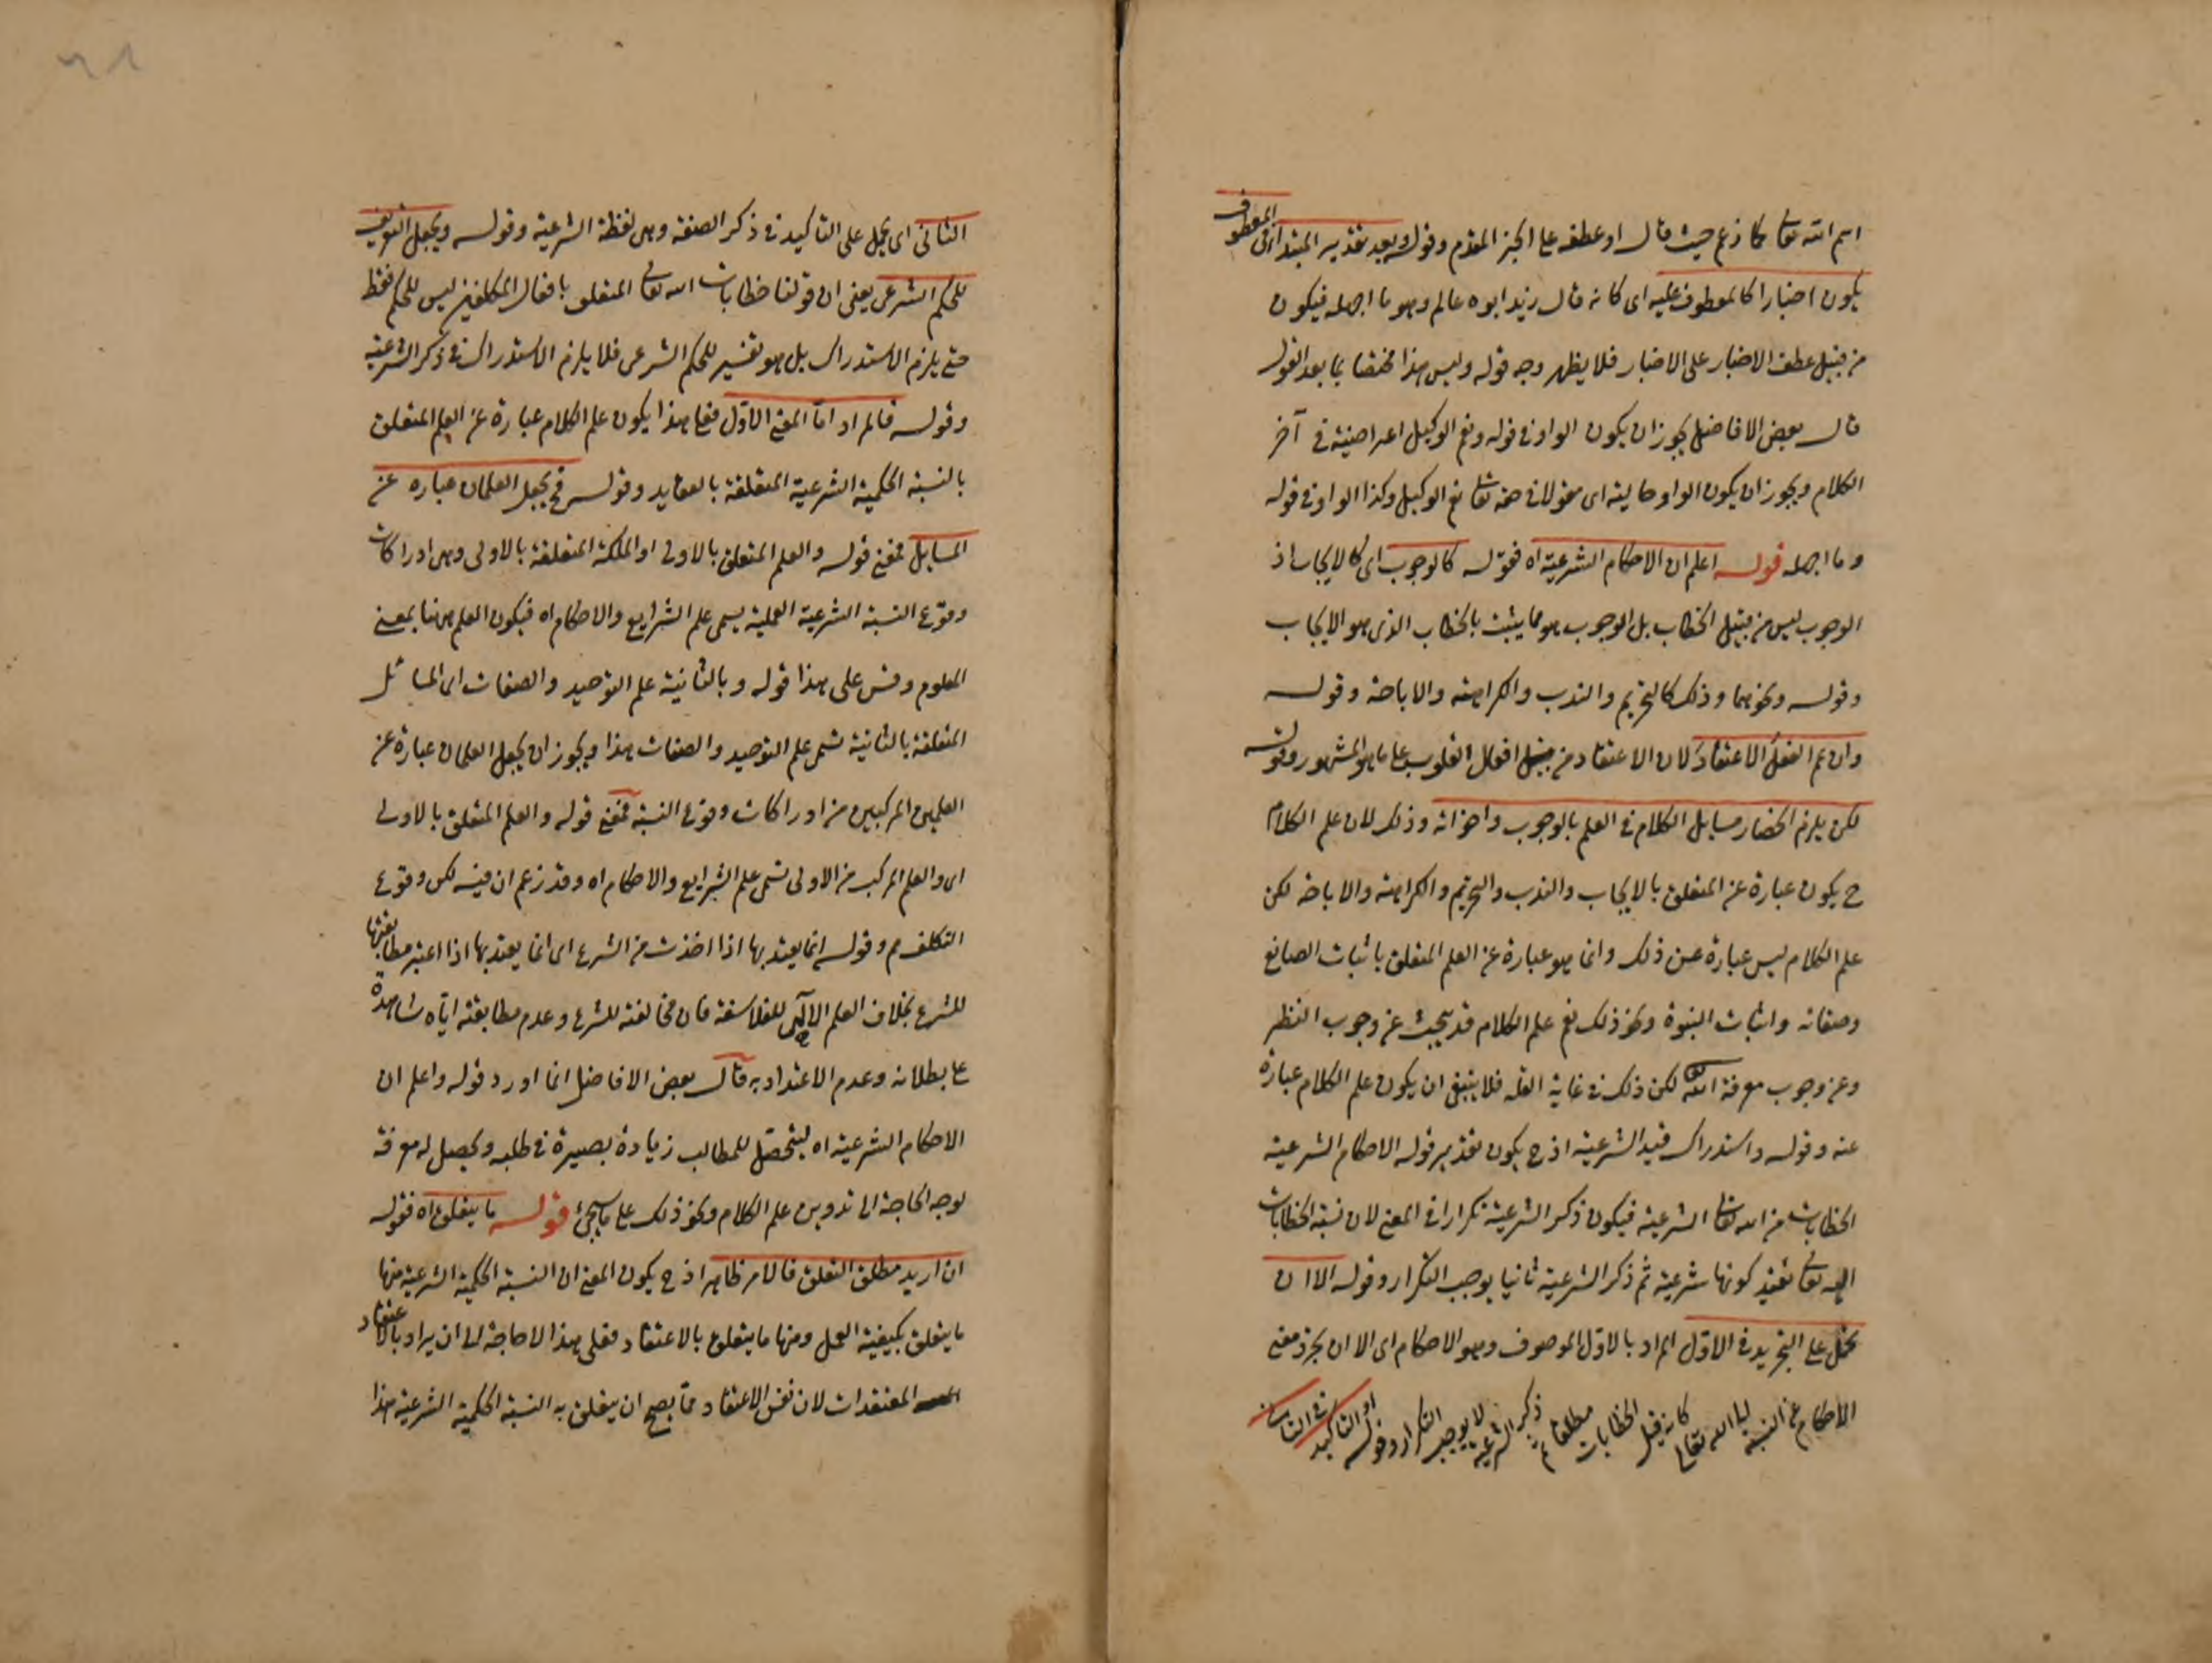 اسم الله تعالى كما زعم حيث قال او عطفه على الخبر المقدم وقوله وبعد تقدير المبتدأ في المعطوف
يكون اخبارا كالمعطوف عليه اى كانه قال زيد ابوه عالم وهو ما اجهله فيكون
من قبيل عطف الاخبار على الاخبار فلا يظهر وجه قوله وليس هذا مختصا بما بعد القول
قال بعض الافاضل يجوز ان يكون الواو في قوله ونعم الوكيل اعتراضية في آخر
الكلام ويجوز ان يكون الواو حالية اى مقولا في حقه تعالى نعم الوكيل وكذا الواو في قوله
وما اجهله قوله اعلم ان الاحكام الشرعية اه فقوله كالوجوب اى كالايجاب اذ
الوجوب ليس من قبيل الخطاب بل الوجوب هو مما يثبت بالخطاب الذى هو الايجاب
وقوله ونحوهما وذلك كالتحريم والندب والكراهة والاباحة وقوله
وان عم الفعل الاعتقاد لان الاعتقاد من قبيل افعال القلوب على ما هو المشهور وقوله
لكن يلزم انحصار مسايل الكلام في العلم بالوجوب واخواته وذلك لان علم الكلام
ح يكون عبارة عن المتعلق بالايجاب والندب والتحريم والكراهة والاباحة لكن
علم الكلام ليس عبارة عن ذلك وانما هو عبارة عن العلم المتعلق باثبات الصانع
وصفاته واثبات النبوة ونحو ذلك نعم علم الكلام قد يبحث عن وجوب النظر
وعن وجوب معرفة الله تعالى لكن ذلك في غاية القلة فلا ينبغى ان يكون علم الكلام عبارة
عنه وقوله واستدراك قيد الشرعية اذ ح يكون تقدير قوله الاحكام الشرعية
الخطابات من الله تعالى الشرعية فيكون ذكر الشرعية تكرارا في المعنى لان نسبة الخطابات
اليه تعالى تفيد كونها شرعية ثم ذكر الشرعية ثانيا يوجب التكرار وقوله الا ان
يحمل على التجريد في الاول المراد بالاول الموصوف وهو الاحكام اى الا ان يجرد معنى
الاحكام عن النسبة الى الله تعالى كانه قيل الخطابات مطلقا ثم ذكر الشرعية لا يوجب التكرار وقوله او التاكيد في الثانى
الثانى اى يحمل على التاكيد في ذكر الصفة وهى لفظة الشرعية وقوله ويجعل التعريف
للحكم الشرعى يعنى ان قولنا خطابات الله تعالى المتعلق بافعال المكلفين ليس للحكم فقط
حتى يلزم الاستدراك بل هو تفسير للحكم الشرعى فلا يلزم الاستدراك في ذكر الشرعية
وقوله فالمراد اما المعنى الاول فعلى هذا يكون علم الكلام عبارة عن العلم المتعلق
بالنسبة الحكمية الشرعية المتعلقة بالعقايد وقوله فح يجعل العلمان عبارة عن
المسايل فمعنى قوله والعلم المتعلق بالاولى او الملكة المتعلقة بالاولى وهى ادراكات
وقوع النسبة الشرعية العملية يسمى علم الشرايع والاحكام اه فيكون العلم ههنا بمعنى
المعلوم وقس على هذا قوله وبالثانية علم التوحيد والصفات اى المسائل
المتعلقة بالثانية تسمى علم التوحيد والصفات هذا ويجوز ان يجعل العلمان عبارة عن
العلمين المركبين من ادراكات وقوع النسبة فمعنى قوله والعلم المتعلق بالاولى
اى والعلم المركب من الاولى تسمى علم الشرايع والاحكام اه وقد زعم ان فيه لكن وقوع
التكلف م وقوله انما يعتد بها اذا اخذت من الشرع اى انما يعتد بها اذا اعتبر مطابقتها
للشرع بخلاف العلم الآلهى للفلاسفة فان مخالفته للشرع وعدم مطابقته اياه شاهدة
على بطلانه وعدم الاعتداد به قال بعض الافاضل انما اورد قوله واعلم ان
الاحكام الشرعية اه ليتحصل للطالب زيادة بصيرة في طلبه ويحصل له معرفة
لوجه الحاجة الى تدوين علم الكلام ونحو ذلك على ما سيجئ قوله ما يتعلق اه فقوله
ان اريد مطلق التعلق فالامر ظاهر اذ ح يكون المعنى ان النسبة الحكمية الشرعية منها
ما يتعلق بكيفية العمل ومنها ما يتعلق بالاعتقاد فعلى هذا لا حاجة الى ان يراد بالاعتقاد
المعتقدات لان نفس الاعتقاد مما يصح ان يتعلق به النسبة الحكمية الشرعية هذا